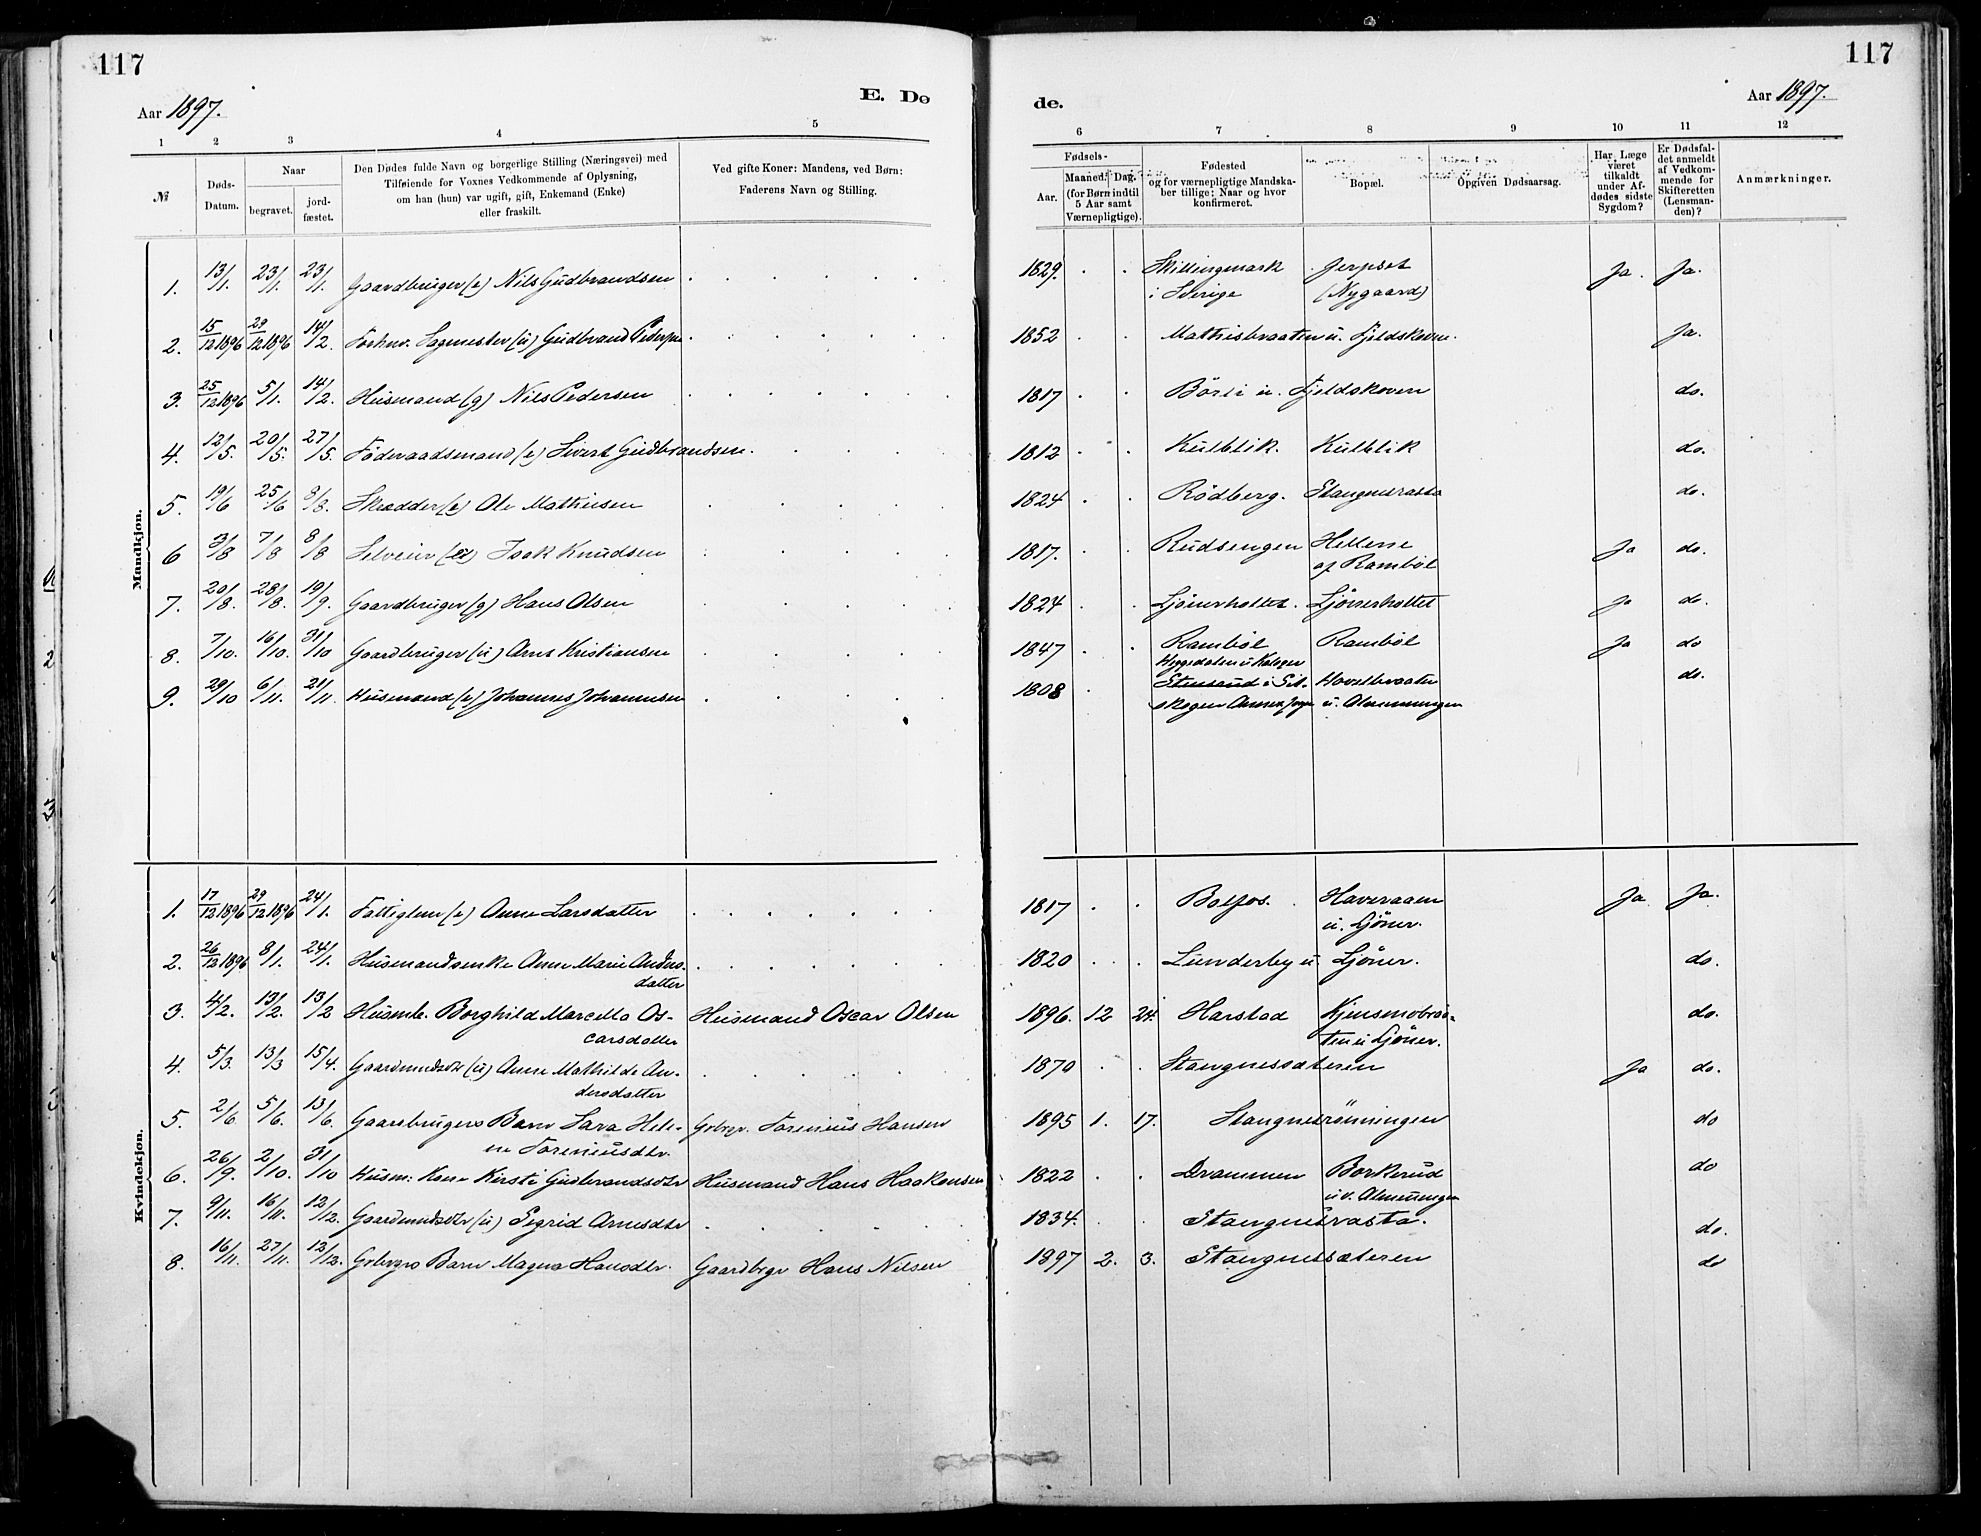 117
117
Aar 1897.
E. Dø
de.
Aar 1897.
1 2 3 4 5 6 7 8 9 10 11 12
№
Døds-Datum.
Naar
begravet.
jord-fæstet.
Den Dødes fulde Navn og borgerlige Stilling (Næringsvei) med
Tilføiende for Voxnes Vedkommende af Oplysning,
om han (hun) var ugift, gift, Enkemand (Enke)
eller fraskilt.
Ved gifte Koner: Mandens, ved Børn:
Faderens Navn og Stilling.
Fødsels-
Aar.
Maaned. Dag.
(for Børn indtil
5 Aar samt
Værnepligtige).
Fødested
og for værnepligtige Mandska-
ber tillige: Naar og hvor
konfirmeret.
Bopæl.
Opgiven Dødsaarsag.
Har Læge
været
tilkaldt
under Af-
dødes sidste
Sygdom?
Er Dødsfal-
det anmeldt
af Vedkom-
mende for
Skifteretten
(Lensman-
den)?
Anmærkninger.
Mandkjøn.
1. 13/1. 23/1. 23/1. Gaardbruger (e) Nils Gudbrandsen 1829. Skillingmark Jerpset Ja. Ja.
i Sverige (Nygaard)
2. 15/12 1896 29/12 1896 14/2. Forhv. Sagmester (u) Gudbrand Pedersen 1852 Mathisbraaten u. Fjeldskoven. Ja.
3. 25/12 1896 5/1. 14/2. Husmand (g) Nils Pedersen 1817 Börli u. Fjeldskoven do.
4. 12/5. 20/5. 27/5. Föderaadsmand (e) Sivert Gudbrandsen. 1812 Kulblik. Kulblik do.
5. 19/6 25/6 8/8. Skrædder (e) Ole Mathisen 1824 Rödberg. Stangnesrasta do.
6 3/8 7/8 8/8 Selveier Isak Knudsen 1817. Rudsengen Hellesse Ja do.
af Ramböl
7. 20/8. 28/8. 19/9. Gaardbruger (g) Hans Olsen 1824 Ljönerholtet. Ljönerholtet Ja do.
8. 7/10. 16/10. 31/10 Gaardbruger (u) Arne Kristiansen 1847 Ramböl Ramböl Ja do
9. 29/10 6/11. 21/11. Husmand (e) Johannes Johannesen 1808 Stensrud i Sil- do.
skogen u. Almenningen
Kvindekjøn.
1. 17/12 1896 29/12 1896 24/1. Fattiglem (e) Anne Larsdatter 1817 Bolfos. Haveraaen Ja Ja.
u. Ljöner.
2. 26/12 1896 8/1. 24/1. Husmandsenke Anne Marie Anders- 1820 Lunderby u. Ljöner. do.
datter
3. 4/2. 13/2. 13/2 Husmb. Borghild Marcella Os- Husmand Oscar Olsen 1896. 12 24. Harstad Kjensmobraa- do.
carsdatter ten u. Ljöner.
4. 5/3. 13/3 15/4. Gaardmdsdtr (u) Anne Mathilde An- 1870 Stangnessæteren Ja do.
dersdatter
5. 2/6 5/6. 13/6. Gaardbrugers Barn Sara Hele- Grbrgr. Torenius Hansen 1895 1. 17. Stangnesrönningen do
ne Toreniusdtr.
6. 26/9. 2/10. 31/10 Husm: Kone Kirsti Gudbrandsdtr Husmand Hans Haakensen 1822 Drammen Borkerud do
uv. Almenningen
7. 9/11. 16/11. 12/12. Gaardmdsdtr (u) Sigrid Arnesdtr 1834. Stangnesrasta. do.
8. 16/11. 27/11. 12/12. Grbrgrs Barn Magna Hansdtr. Gaardbrgr Hans Nilsen 1897 2. 3. Stangnessæteren do